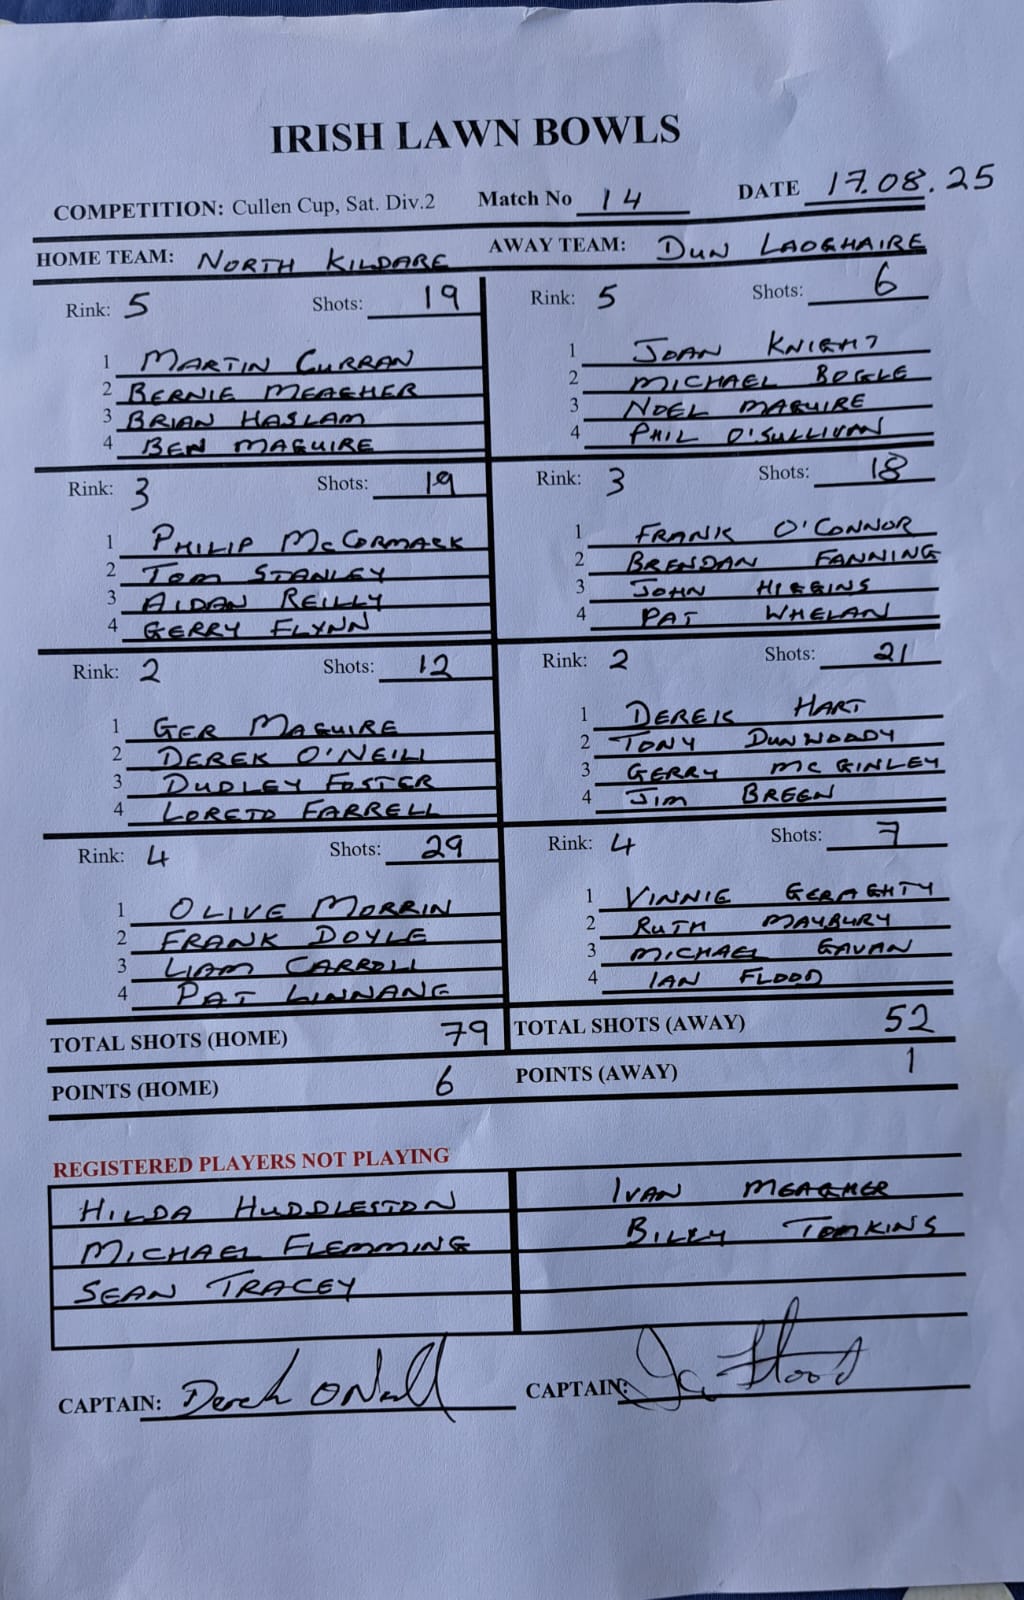 IRISH LAWN BOWLS
COMPETITION: Cullen Cup, Sat. Div.2 Match No 14 DATE 17.08.25
HOME TEAM: NORTH KILDARE AWAY TEAM: DUN LAOGHAIRE
Rink: 5 Shots: 19
1 MARTIN CURRAN
2 BERNIE MEAGHER
3 BRIAN HASLAM
4 BEN MAGUIRE
Rink: 5 Shots: 6
1 JOAN KNIGHT
2 MICHAEL BOGGLE
3 NOEL MAGUIRE
4 PHIL O'SULLIVAN
Rink: 3 Shots: 19
1 PHILIP McCORMACK
2 TOM STANLEY
3 AIDAN REILLY
4 GERRY FLYNN
Rink: 3 Shots: 18
1 FRANK O'CONNOR
2 BRENDAN FANNING
3 JOHN HIGGINS
4 PAT WHELAN
Rink: 2 Shots: 12
1 GER MAGUIRE
2 DEREK O'NEILL
3 DUDLEY FOSTER
4 LORETO FARRELL
Rink: 2 Shots: 21
1 DEREK HART
2 TONY DUNWOODY
3 GERRY McGINLEY
4 JIM BREEN
Rink: 4 Shots: 29
1 OLIVE MORRIN
2 FRANK DOYLE
3 LIAM CARROLL
4 PAT LINNANE
Rink: 4 Shots: 7
1 VINNIE GERAGHTY
2 RUTH MAYBURY
3 MICHAEL GAVAN
4 IAN FLOOD
TOTAL SHOTS (HOME) 79 TOTAL SHOTS (AWAY) 52
POINTS (HOME) 6 POINTS (AWAY) 1
REGISTERED PLAYERS NOT PLAYING
HILDA HUDDLESTON
MICHAEL FLEMMING
SEAN TRACEY
IVAN MEAGHER
BILLY TOMKINS
CAPTAIN: Derek O'Neill CAPTAIN: Flood